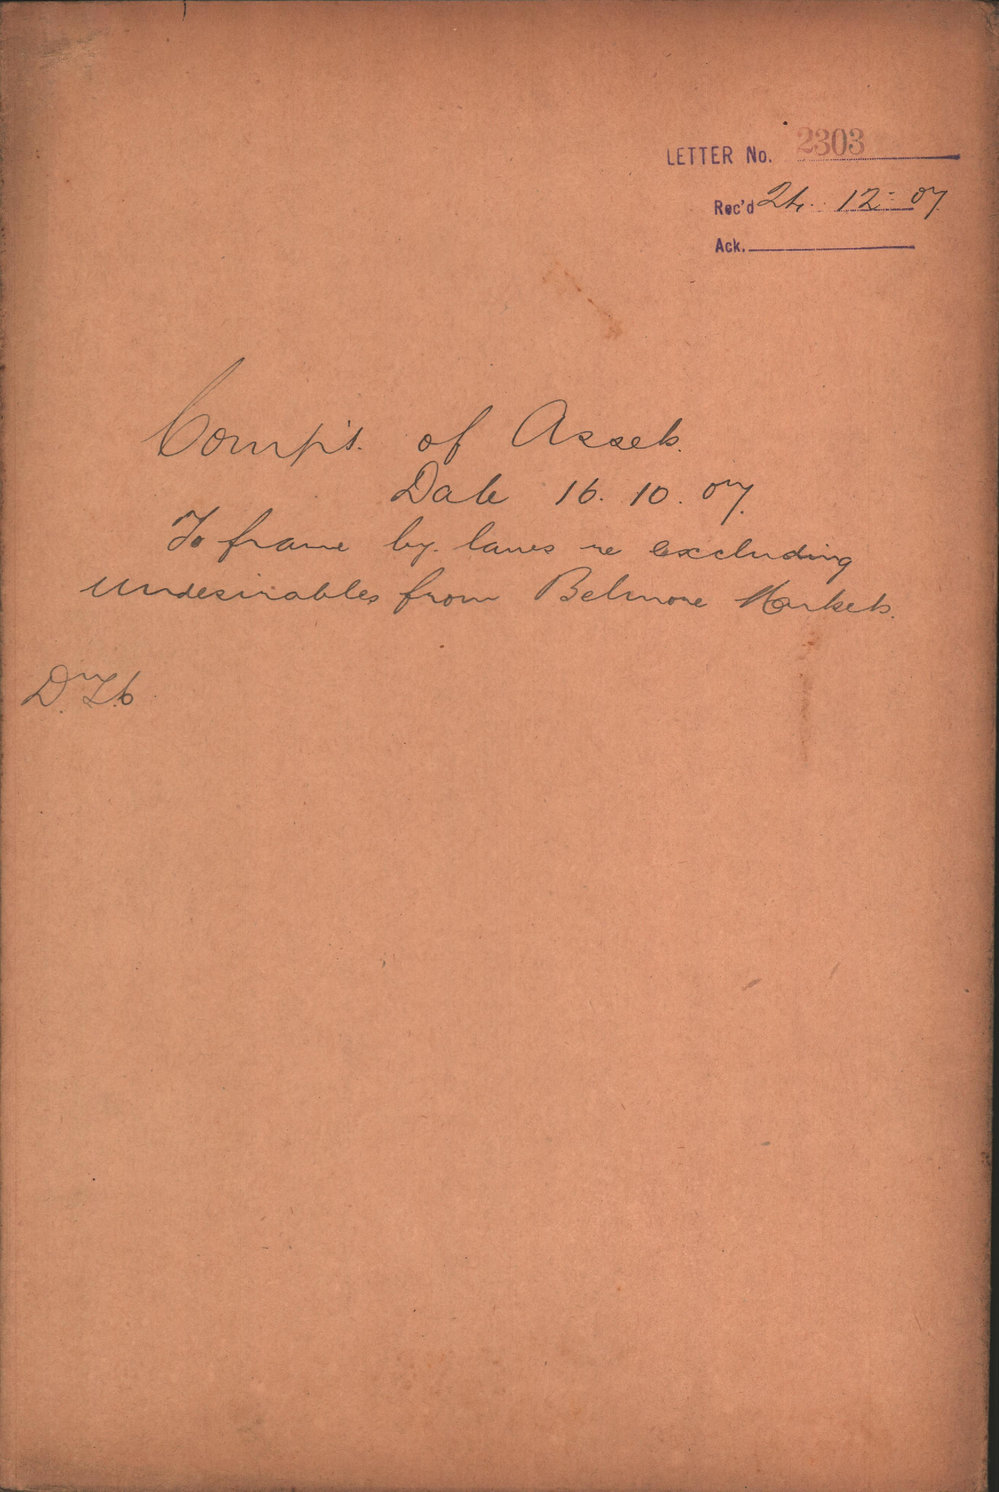 LETTER No. 2303
Rec'd 24. 12 - 07
Ack.
Comp't. of Assets.
Date 16. 10. 07.
To frame by. laws re excluding
undesirables from Belmore Markets.